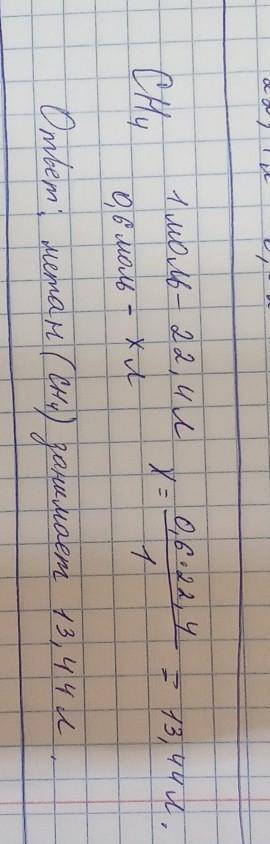 CH4
1 моль - 22,4 л
0,6 моль - х л
х = 0,6·22,4 / 1 = 13,44 л.
Ответ: метан (CH4) занимает 13,44 л.